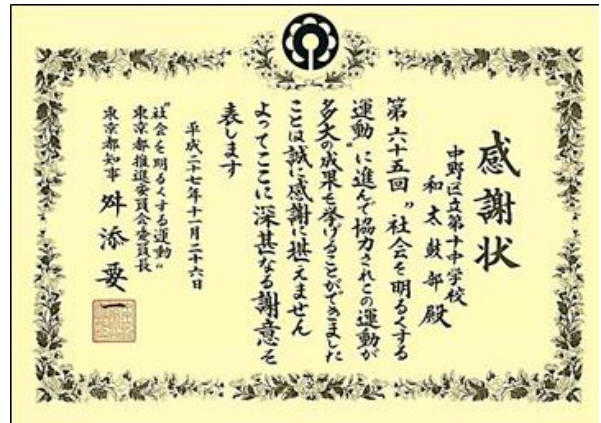 感謝状
中野区立第十中学校
和太鼓部殿
第六十五回“社会を明るくする
運動”に進んで協力されこの運動が
多大の成果を挙げることができました
ことは誠に感謝に堪えません
よってここに深甚なる謝意を
表します
平成二十七年十一月二十六日
“社会を明るくする運動”
東京都推進委員会委員長
東京都知事 舛添要一